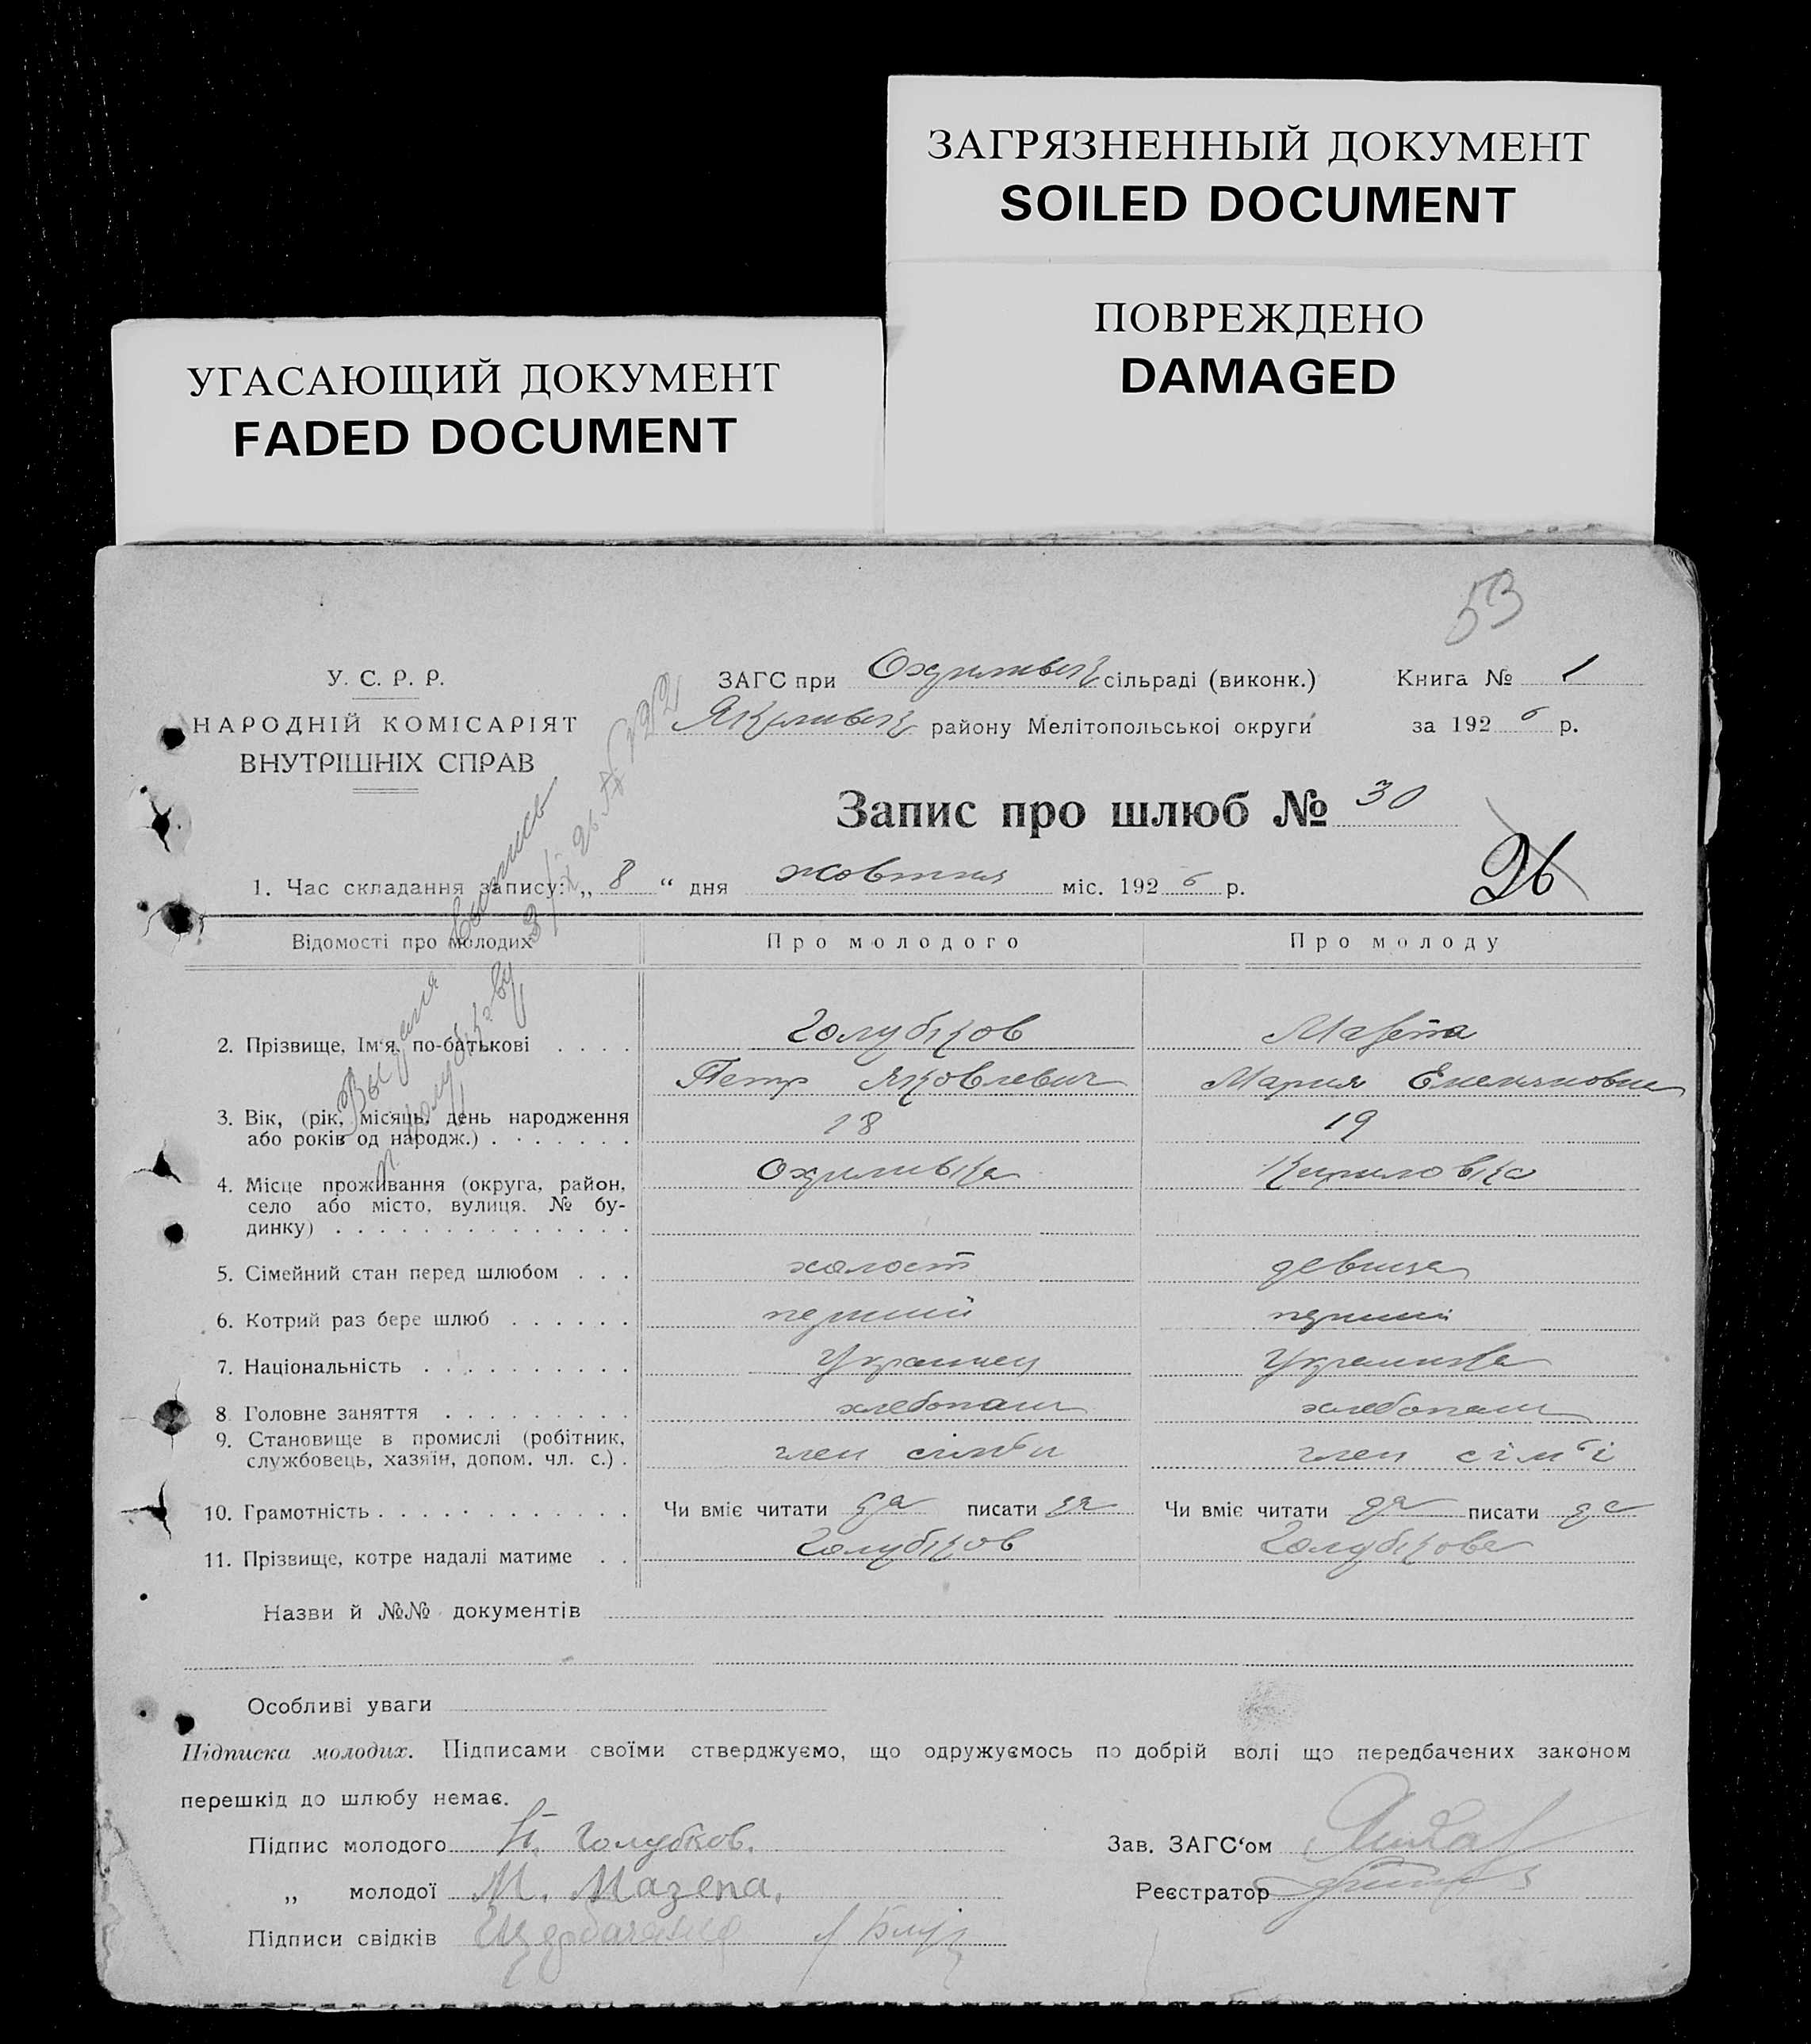 ЗАГРЯЗНЕННЫЙ ДОКУМЕНТ
SOILED DOCUMENT
ПОВРЕЖДЕНО
DAMAGED
УГАСАЮЩИЙ ДОКУМЕНТ
FADED DOCUMENT
53
У. С. Р. Р.
НАРОДНІЙ КОМІСАРІЯТ
ВНУТРІШНІХ СПРАВ
ЗАГС при сільраді (виконк.)
району Мелітопольської округи
Книга № 1
за 192 6 р.
Запис про шлюб № 30
26
1. Час складання запису: „ 8 “ дня жовтня міс. 192 6 р.
Відомості про молодих Про молодого Про молоду
2. Прізвище, Ім'я, по-батькові . . . . Голубков Мазепа
Петр Яковлевич Мария Емельяновна
3. Вік, (рік, місяць, день народження 18 19
або років од народж.) . . . . . . .
4. Місце проживання (округа, район, Охримівка Кириловка
село або місто, вулиця. № бу-
динку) . . . . . . . . . . . . . .
5. Сімейний стан перед шлюбом . . . холост девица
6. Котрий раз бере шлюб . . . . . . перший перший
7. Національність . . . . . . . . . . Украинец Украинка
8 Головне заняття . . . . . . . . . хлебопаш хлебопаш
9. Становище в промислі (робітник, член сім'ї член сім'ї
службовець, хазяїн, допом. чл. с.) .
10. Грамотність . . . . . . . . . . . . Чи вміє читати да писати да Чи вміє читати да писати да
11. Прізвище, котре надалі матиме . . Голубков Голубкова
Назви й №№ документів
Особливі уваги
Підписка молодих. Підписами своїми стверджуємо, що одружуємось по добрій волі що передбачених законом
перешкід до шлюбу немає.
Підпис молодого П. Голубков.
Зав. ЗАГС‘ом
„ молодої М. Мазепа.
Реєстратор
Підписи свідків